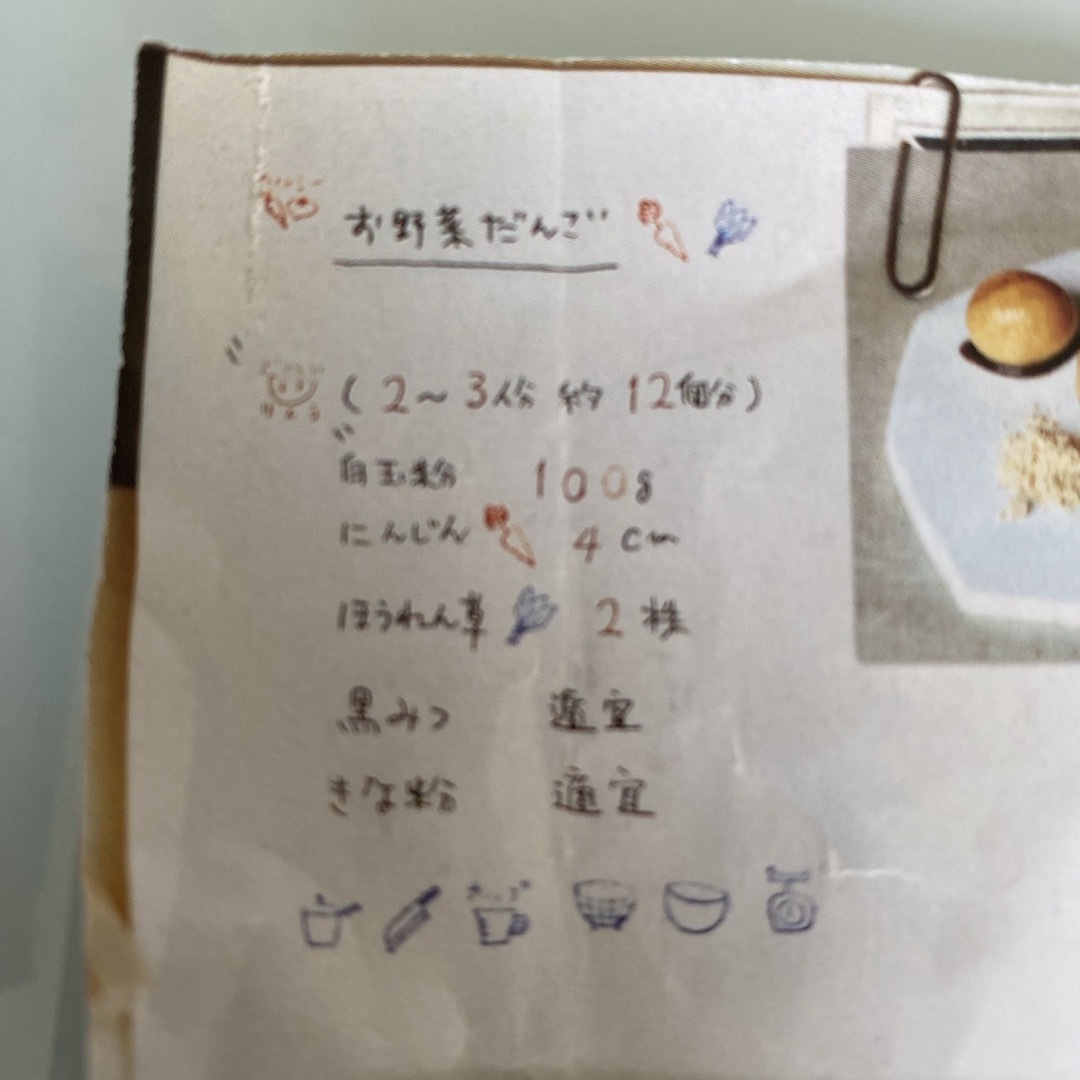 お野菜だんご
(2〜3人分 約12個分)
白玉粉 100g
にんじん 4cm
ほうれん草 2株
黒みつ 適宜
きな粉 適宜